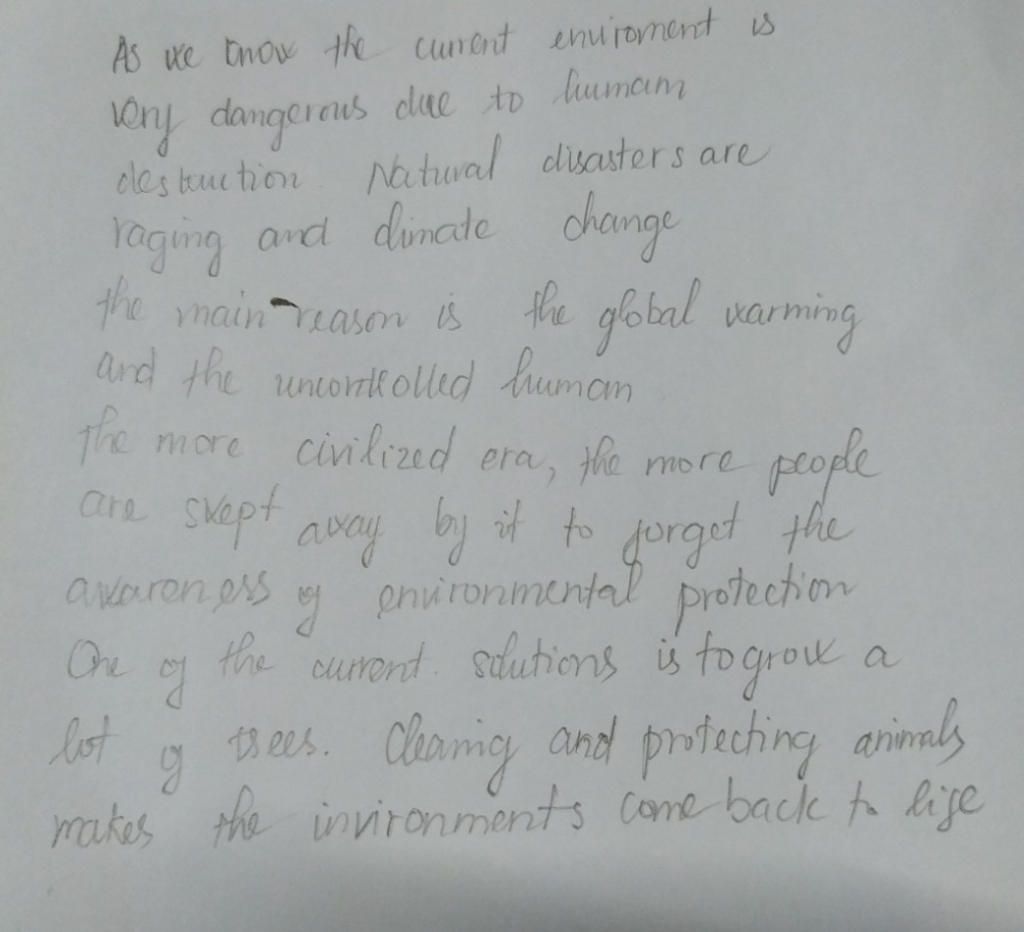 As we know the current enviroment is
very dangerous due to humam
destruction. Natural disasters are
raging and climate change
the main reason is the global warming
and the uncontrolled human
The more civilized era, the more people
are swept away by it to forget the
awareness of environmental protection
One of the current. solutions is to grow a
lot of trees. Cleaning and protecting animals
makes the invironments come back to life